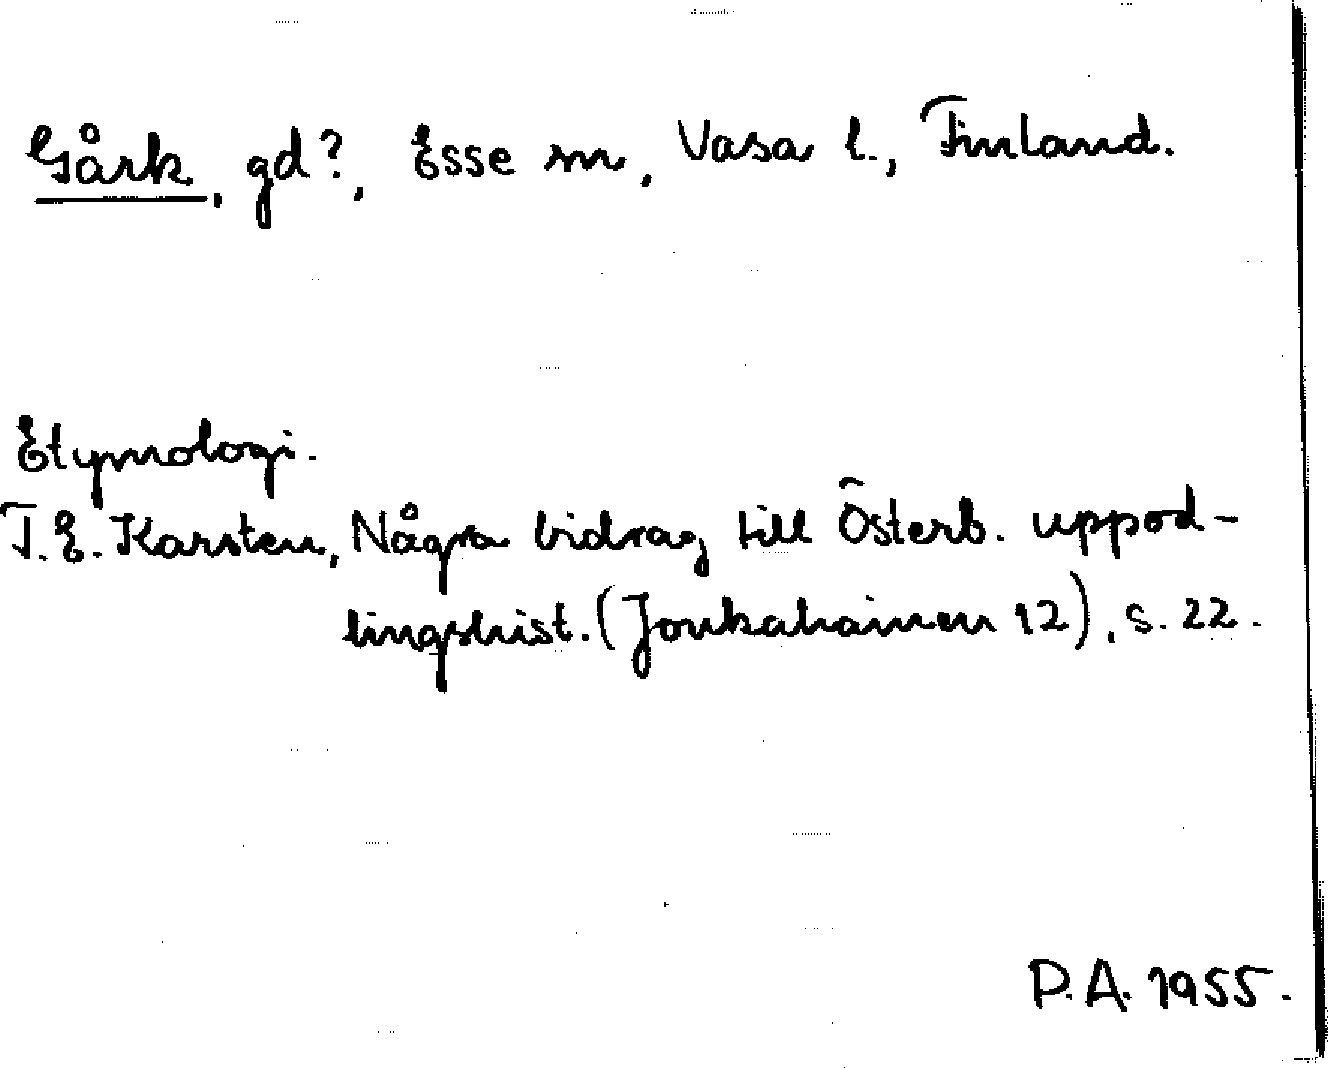 Gårk, gd?, Esse sn, Vasa l., Finland.
Etymologi.
T.E. Karsten, Några bidrag till Österb. uppod-
lingshist. (Joukahainen 12), s. 22.
P.A. 1955.